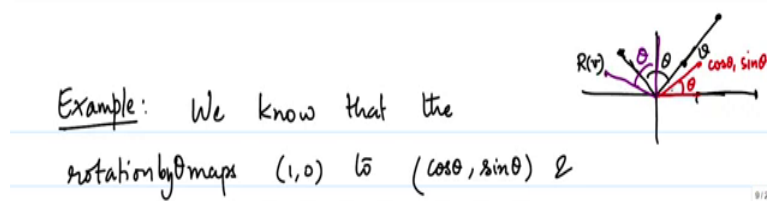 R(v) θ θ v cosθ, sinθ
θ
Example: We know that the
rotation by θ maps (1,0) to (cosθ, sinθ) &